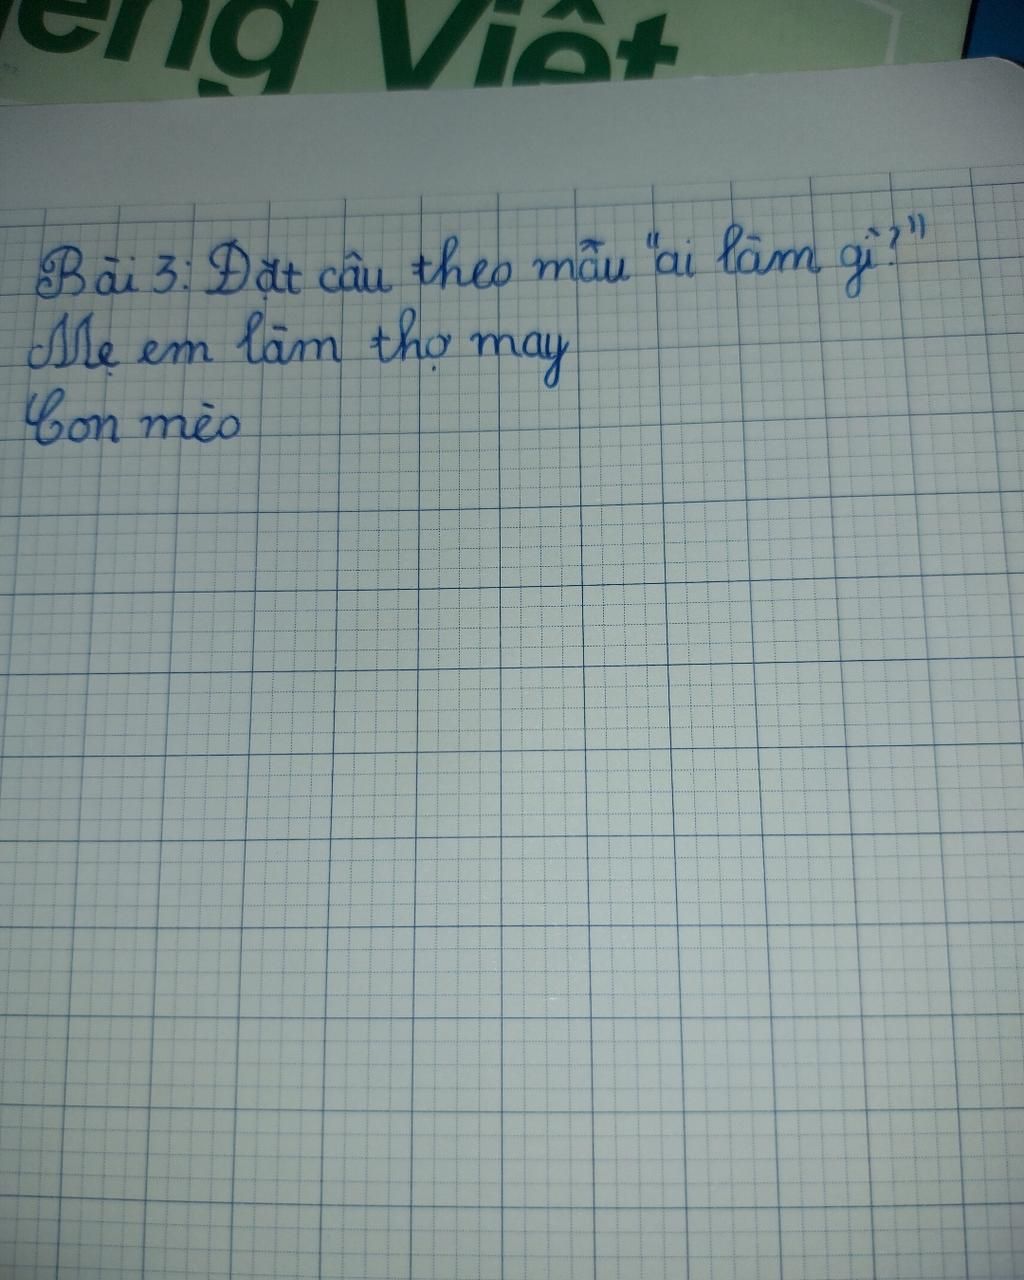 iếng Việt
Bài 3: Đặt câu theo mẫu "ai làm gì?"
Mẹ em làm thợ may
Con mèo